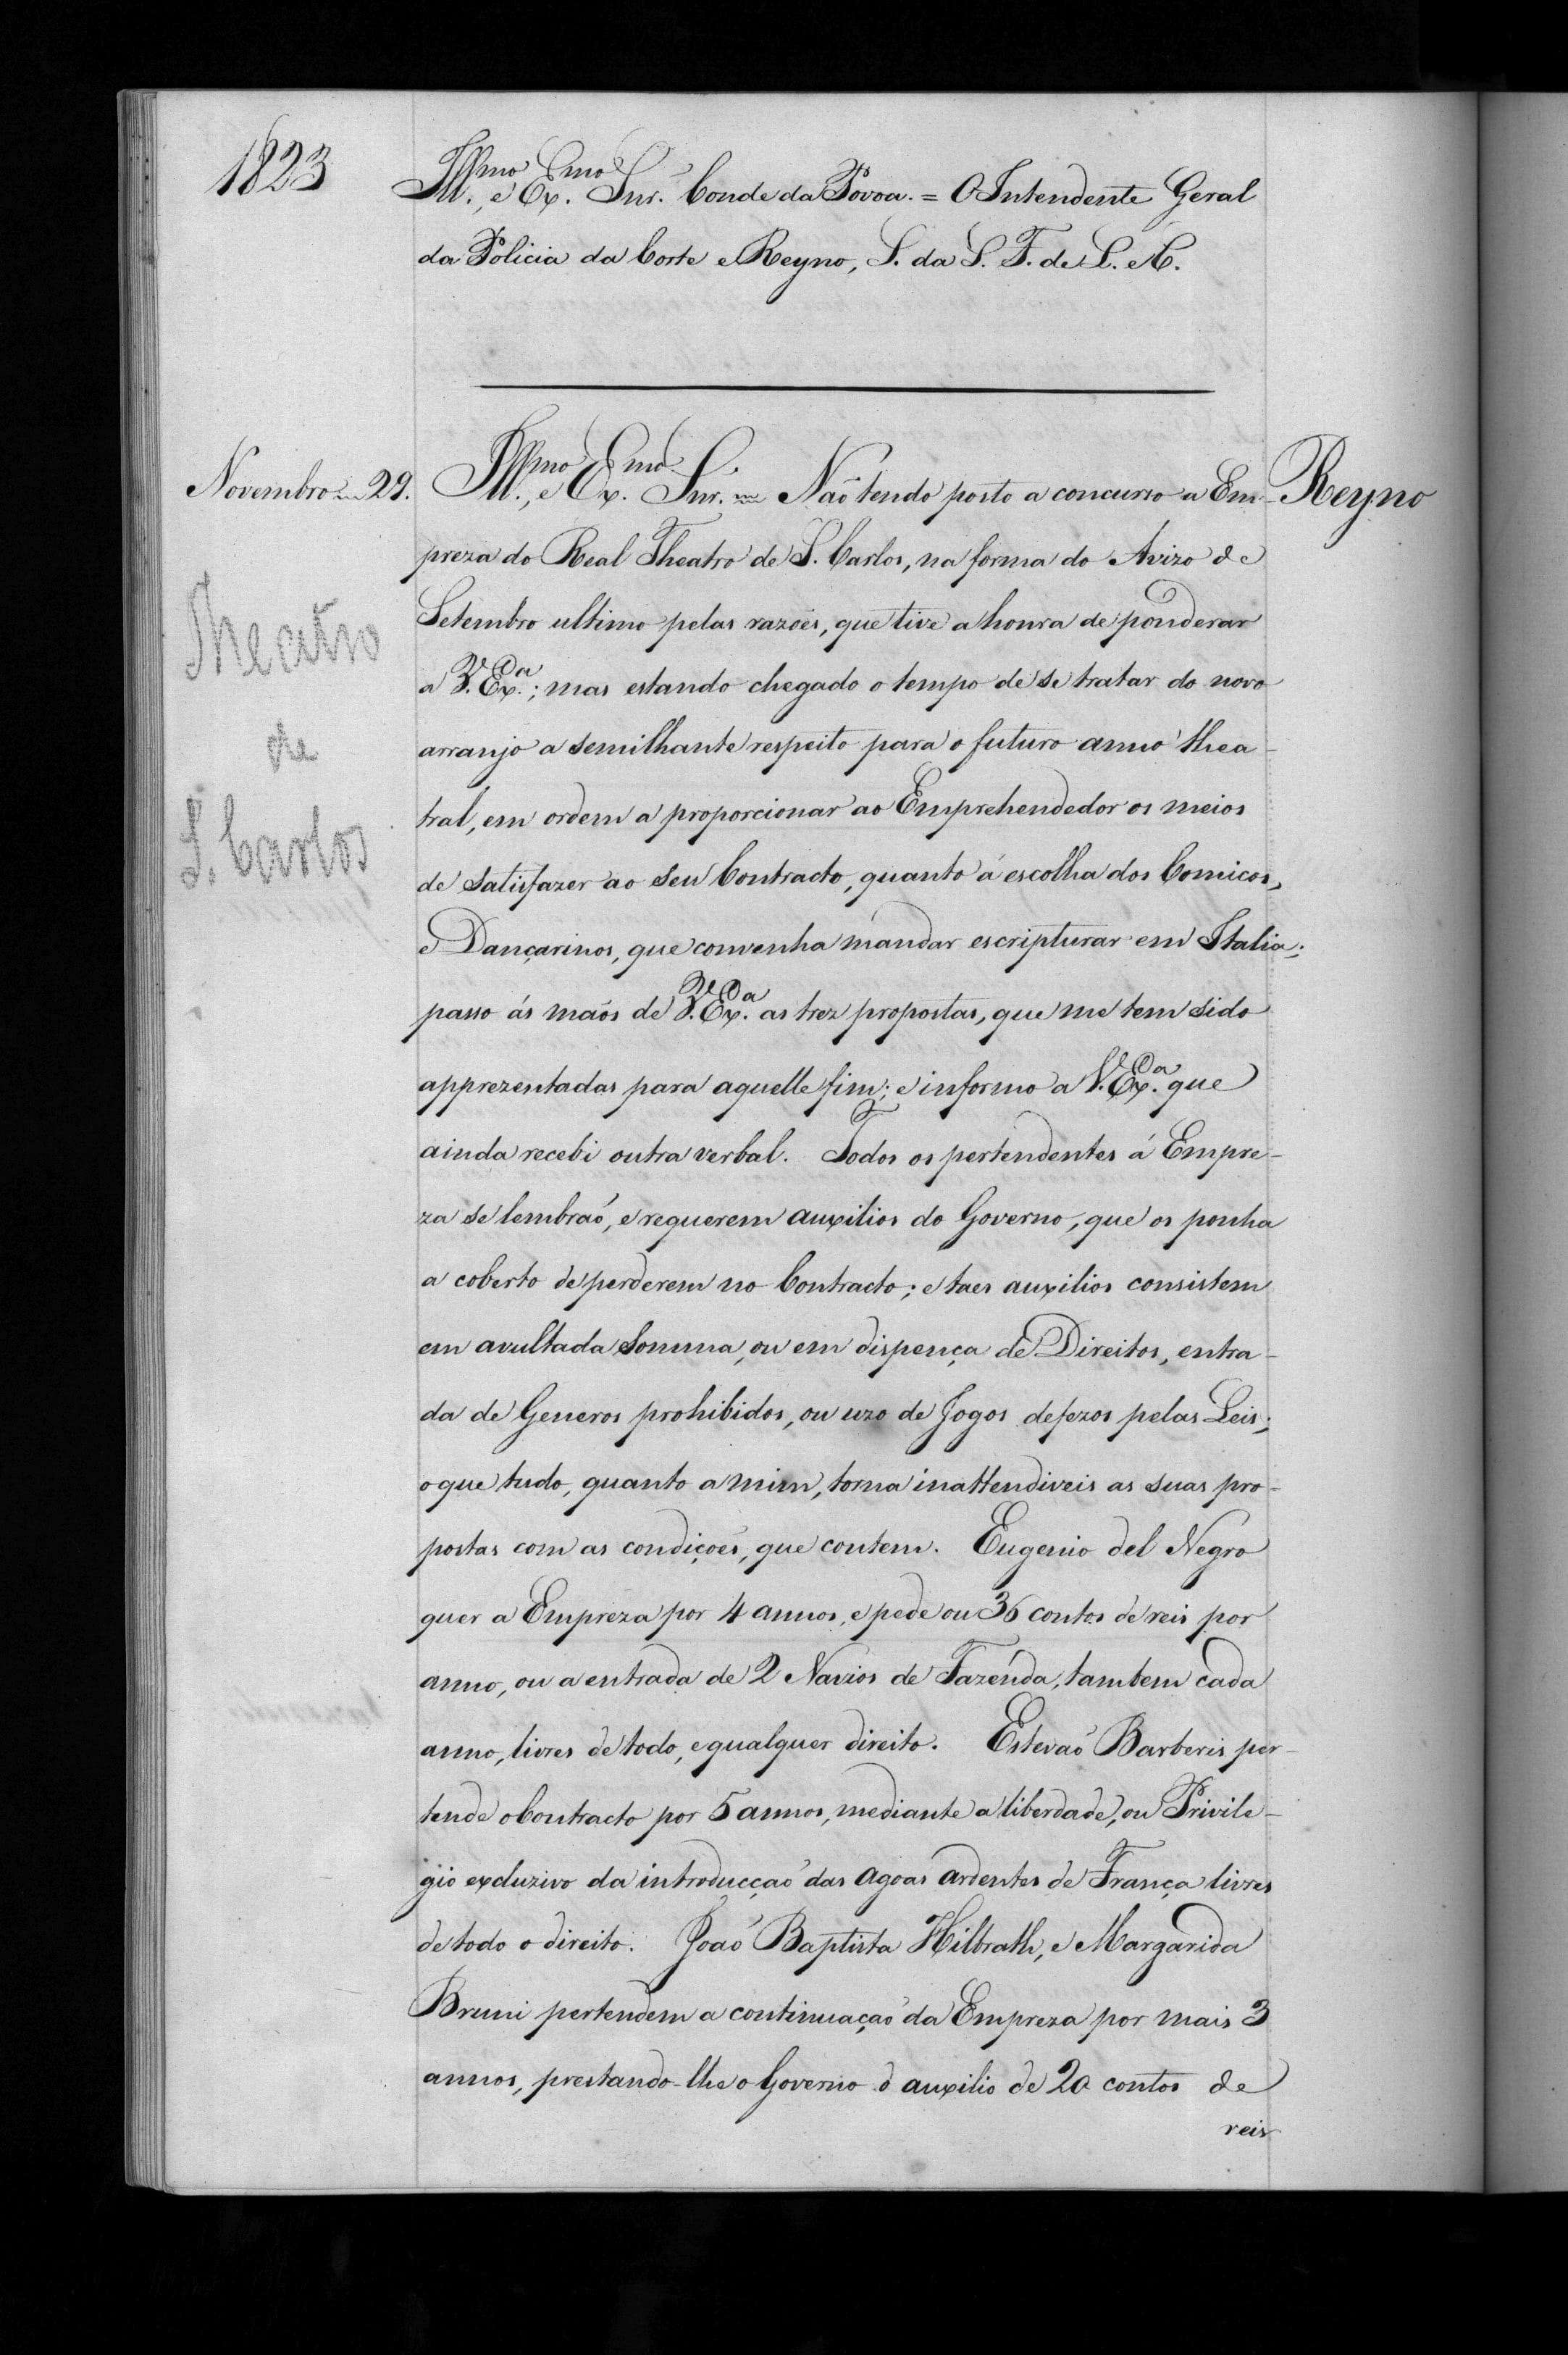 1823
Ill.mo, e Ex.mo Snr. Conde da Povoa. = O Intendente Geral
da Policia da Corte e Reyno, S. da S. F. de L. e C.
Novembro = 29.
Ill.mo, e Ex.mo Snr. = Naõ tendo posto a concurso a Em-
Reyno
preza do Real Theatro de S. Carlos, na forma do Avizo de
Setembro ultimo pelas razoẽs, que tive a honra de ponderar
a V. Ex.a; mas estando chegado o tempo de se tratar do novo
arranjo a semilhante respeito para o futuro anno thea-
tral, em ordem a proporcionar ao Emprehendedor os meios
de satisfazer ao seu Contracto, quanto á escolha dos Comicos,
e Dançarinos, que convenha mandar escripturar em Italia;
passo ás maõs de V. Ex.a as trez propostas, que me tem sido
apprezentadas para aquelle fim; e informo a V. Ex.a que
ainda recebi outra verbal. Todos os pertendentes á Empre-
za se lembraõ, e requerem auxilios do Governo, que os ponha
a coberto de perderem no Contracto; e taes auxilios consistem
em avultada somma, ou em dispença de Direitos, entra-
da de Generos prohibidos, ou uzo de Jogos defezos pelas Leis;
o que tudo, quanto a mim, torna inattendiveis as suas pro-
postas com as condiçoẽs, que contem. Eugenio del Negro
quer a Empreza por 4 annos, e pede ou 36 contos de reis por
anno, ou a entrada de 2 Navios de Fazenda, tambem cada
anno, livres de todo, e qualquer direito. Estevaõ Barberis per-
tende o Contracto por 5 annos, mediante a liberdade, ou Privile-
gio excluzivo da introducçaõ das agoas ardentes de França livres
de todo o direito. Joaõ Baptista Hilbrath, e Margarida
Bruni pertendem a continuaçaõ da Empreza por mais 3
annos, prestando-lhe o Governo o auxilio de 20 contos de
reis
Theatro
de
S. Carlos